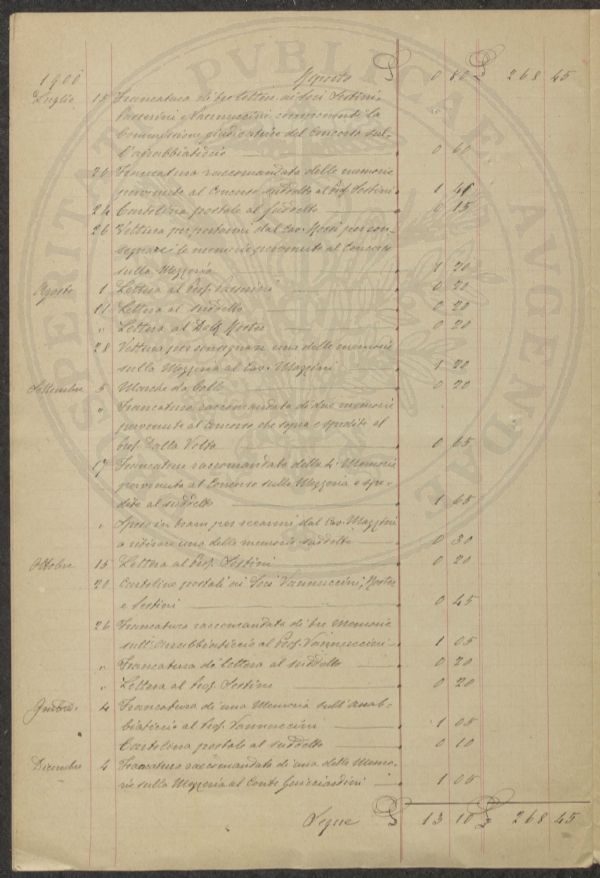 1900 Riporto £ 0 80 £ 268 45
Luglio 15 Francatura di tre lettere ai Soci Sestini,
Passerini e Vannuccini componenti la
Commissione giudicatrice del Concorso sul-
l'arrabbiaticcio 0 60
26 Francatura raccomandata delle memorie
pervenute al Concorso suddetto al Prof. Sestini 1 45
24 Cartolina postale al suddetto 0 15
26 Vettura per portarmi dal Cav. per con-
segnare le memorie pervenute al Concorso
sulla Mezzeria 1 20
Agosto 1 Lettera al Prof. 0 20
11 Lettera al suddetto 0 20
" Lettera al Dott. 0 20
28 Vettura per consegnare una delle memorie
sulla Mezzeria al Cav. Mazzini 1 20
Settembre 5 Marche da bollo 0 20
" Francatura raccomandata di due memorie
pervenute al Concorso che sopra e spedite al
Prof. Dalla Volta 0 65
17 Francatura raccomandata della 4ª Memoria
pervenuta al Concorso sulla Mezzeria e spe-
dita al suddetto 1 65
" Spese in tram per recarmi dal Cav. Mazzini
a ritirare una delle memorie suddette 0 30
Ottobre 15 Lettera al Prof. Sestini 0 20
20 Cartoline postali ai Soci Vannuccini,
e Sestini 0 45
26 Francatura raccomandata di tre Memorie
sull'Arrabbiaticcio al Prof. Vannuccini 1 05
" Francatura di lettera al suddetto 0 20
" Lettera al Prof. Sestini 0 20
4 Francatura di una Memoria sull'Arrab-
biaticcio al Prof. Vannuccini 1 05
Cartolina postale al suddetto 0 10
Dicembre 4 Francatura raccomandata di una delle Memo-
rie sulla Mezzeria al Conte Guicciardini 1 05
Segue £ 13 10 £ 268 45
PROSPERITATI PVBLICAE AVGENDAE